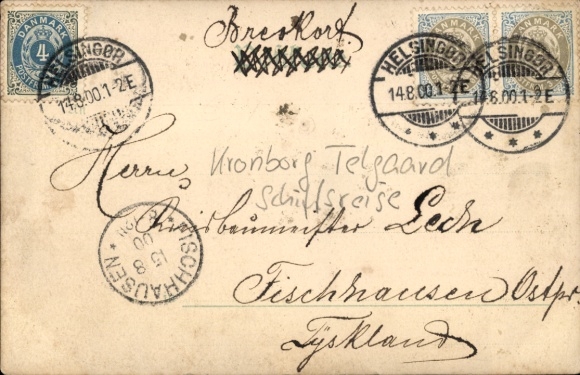 DANMARK
4
Brevkort
HELSINGØR
14.8.00.1-2E
HELSINGØR
14.8.00.1-2E
HELSINGØR
14.8.00.1-2E
Herrn
Kronborg Telgaard
Schiffsreise
Kreisbaumeister Lech
FISCHHAUSEN
15 8
00
Fischhausen Ostpr.
Tyskland